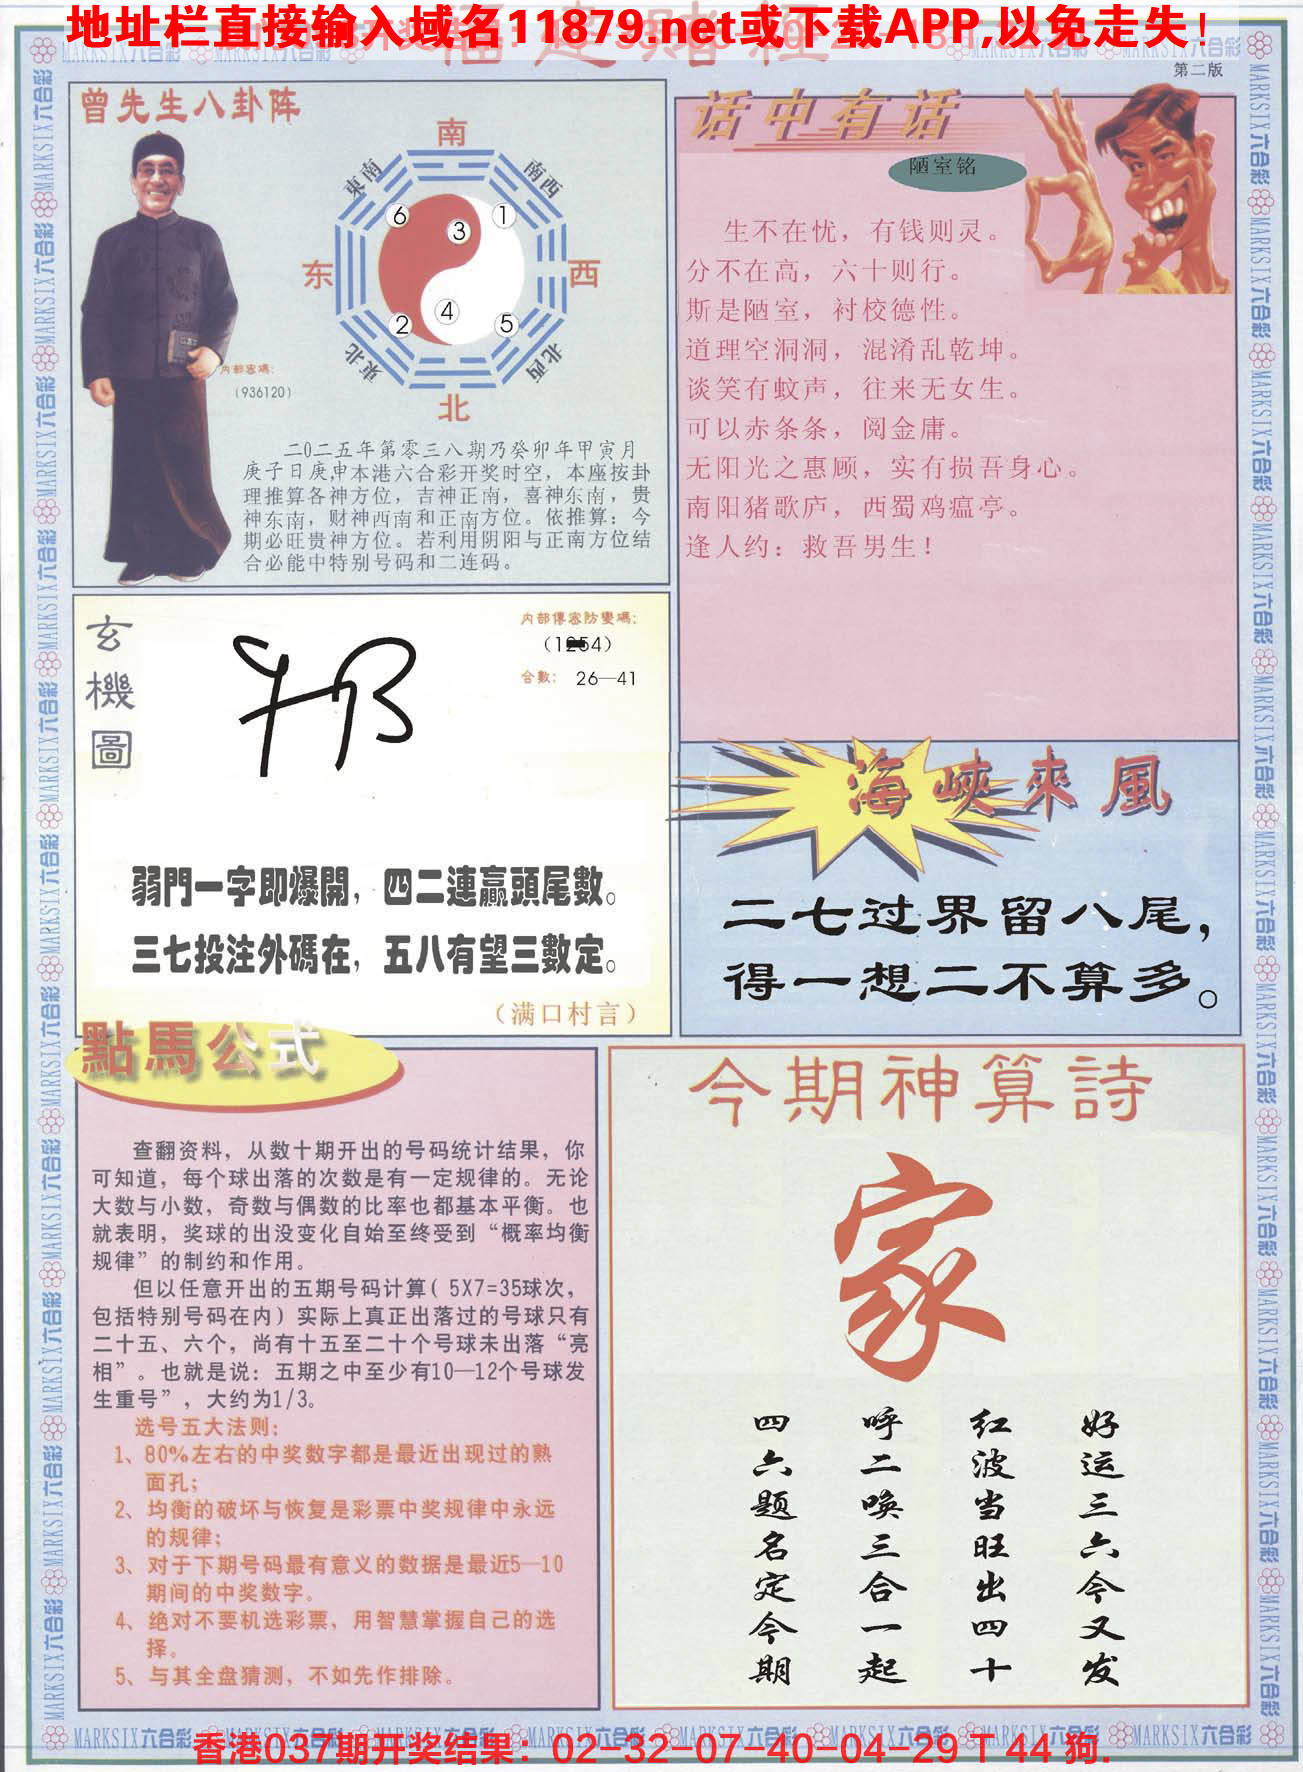 地址栏直接输入域名11879.net或下载APP,以免走失!
第二版
曾先生八卦阵
南
東南
南西
6
3
1
东
西
4
2
5
東北
北西
北
内部密碼:
(936120)
二0二五年第零三八期乃癸卯年甲寅月
庚子日庚申本港六合彩开奖时空，本座按卦
理推算各神方位，吉神正南，喜神东南，贵
神东南，财神西南和正南方位。依推算：今
期必旺贵神方位。若利用阴阳与正南方位结
合必能中特别号码和二连码。
话中有话
陋室铭
生不在忧，有钱则灵。
分不在高，六十则行。
斯是陋室，衬校德性。
道理空洞洞，混淆乱乾坤。
谈笑有蚊声，往来无女生。
可以赤条条，阅金庸。
无阳光之惠顾，实有损吾身心。
南阳猪歌庐，西蜀鸡瘟亭。
逢人约：救吾男生！
玄機圖
内部傳密防變碼:
合數: 26—41
弱門一字即爆開，四二連贏頭尾數。
三七投注外碼在，五八有望三數定。
（满口村言）
海峽來風
二七过界留八尾，
得一想二不算多。
點馬公式
查翻资料，从数十期开出的号码统计结果，你
可知道，每个球出落的次数是有一定规律的。无论
大数与小数，奇数与偶数的比率也都基本平衡。也
就表明，奖球的出没变化自始至终受到“概率均衡
规律”的制约和作用。
但以任意开出的五期号码计算( 5X7=35球次，
包括特别号码在内）实际上真正出落过的号球只有
二十五、六个，尚有十五至二十个号球未出落“亮
相”。也就是说：五期之中至少有10—12个号球发
生重号”，大约为1/3。
选号五大法则：
1、80%左右的中奖数字都是最近出现过的熟
面孔；
2、均衡的破坏与恢复是彩票中奖规律中永远
的规律；
3、对于下期号码最有意义的数据是最近5—10
期间的中奖数字。
4、绝对不要机选彩票，用智慧掌握自己的选
择。
5、与其全盘猜测，不如先作排除。
今期神算詩
家
好运三六今又发
红波当旺出四十
呼二唤三合一起
四六题名定今期
MARKSIX六合彩
香港037期开奖结果：02-32-07-40-04-29 T 44 狗.